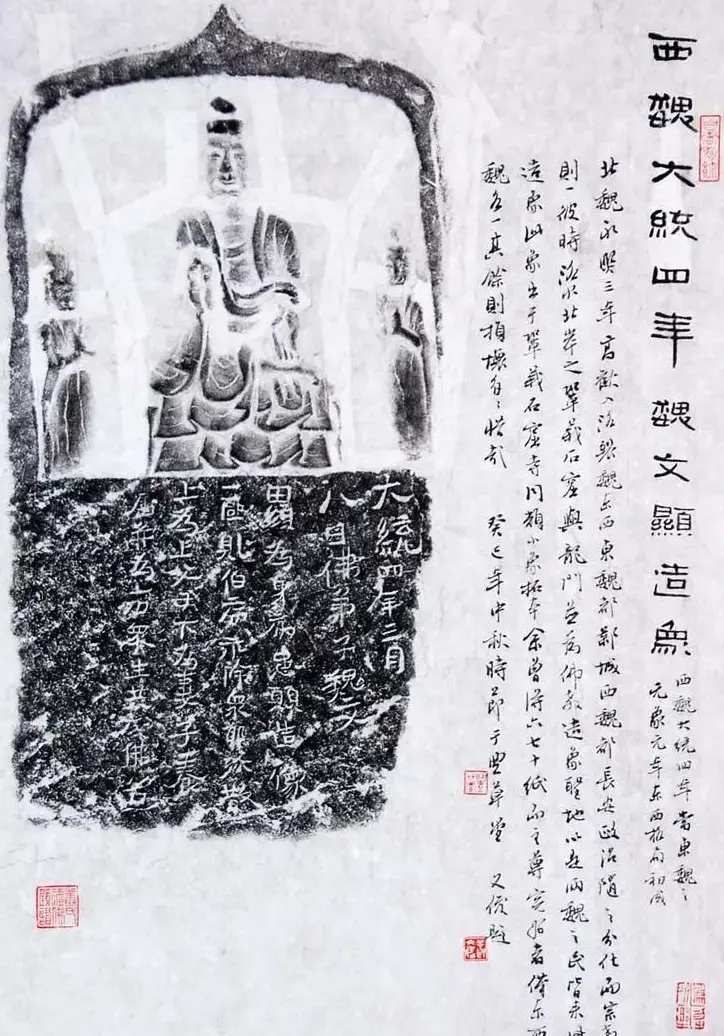 西魏大統四年魏文顯造象
西魏大統四年當東魏之
元象元年東西格局初成
北魏永熙三年高歡入洛裂魏东西東魏都鄴城西魏都長安政治隨之分化而宗教
則一彼時洛水北岸之鞏義石窟與龍門並為佛教造象聖地以是兩魏之民皆來
造象此象出于鞏義石窟寺同類小象拓本余曾得六七十紙而主尊完好者僅东西
魏各一其餘則損壞惜哉
癸巳年中秋時節于草堂又題
大統四年三月
八日佛弟子魏文
顯為身病患願造像
一區
上為父母下為妻子養
屬并為一切眾生共成佛